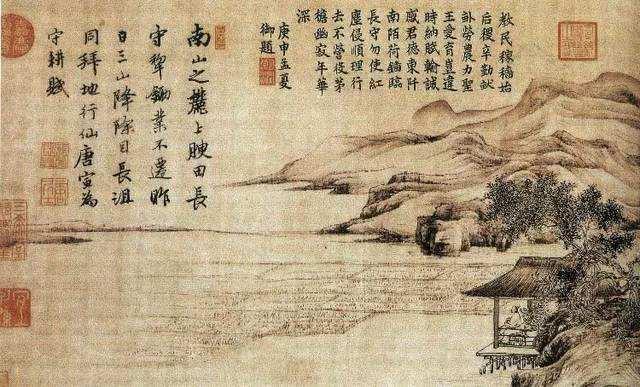 教民稼穡始
后稷卒勤畎
畝勞農力聖
王愛育豈違
時納賦輸誠
感君德東阡
南陌荷鋤臨
長守勿使紅
塵侵順理行
去不營役茅
檐幽寂年華
深
庚申孟夏
御題
南山之麓上腴田長
守犂鋤業不遷昨
日三山降除目長沮
同拜地行仙唐寅為
守耕賦